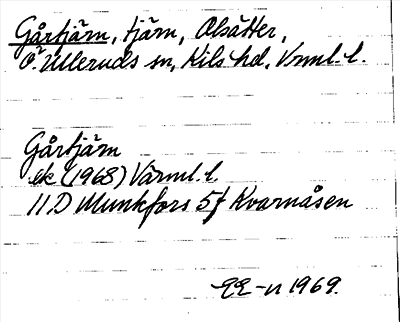 Gårtjärn, tjärn, Olsätter,
Ö. Ulleruds sn, Kils hd, Vrml. l.
Gårtjärn
ek (1968) Värml. l.
11D Munkfors 5f Kvarnåsen
1969.